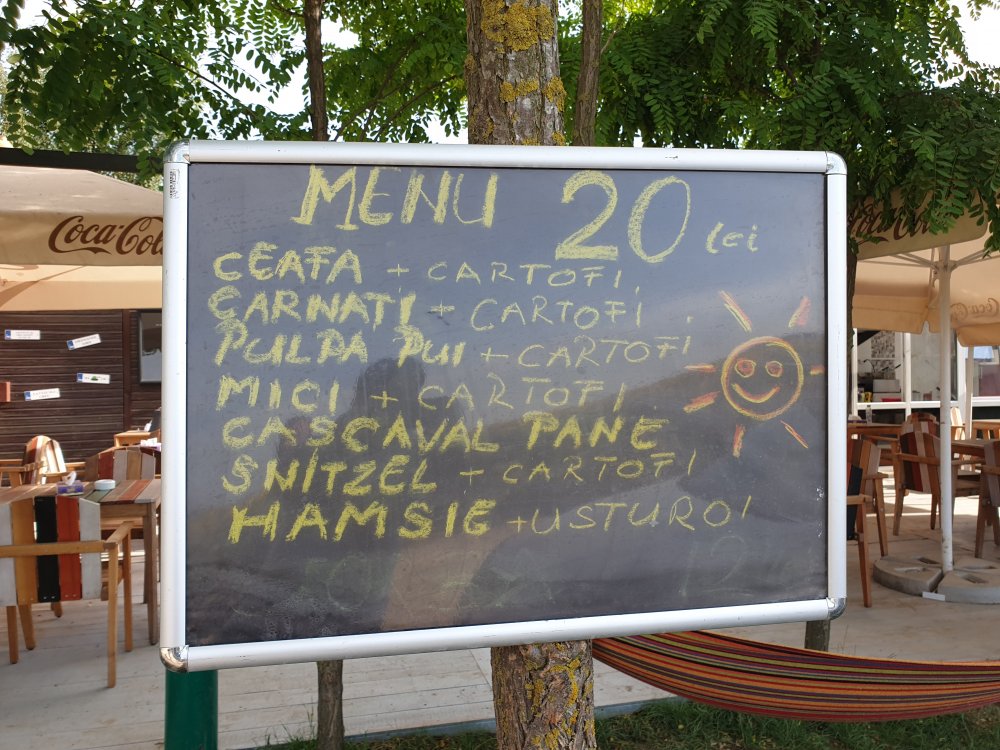 MENU 20 lei
CEAFA + CARTOFI
CARNATI + CARTOFI
PULPA PUI + CARTOFI
MICI + CARTOFI
CASCAVAL PANE
SNITZEL + CARTOFI
HAMSIE + USTUROI
Coca-Col